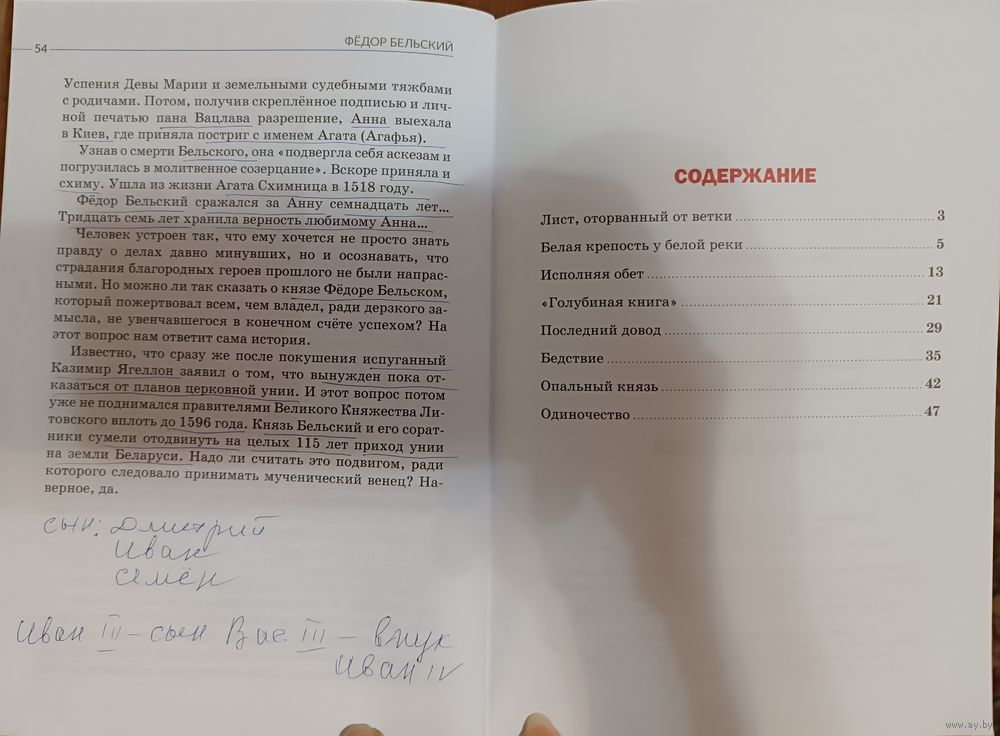 54
ФЁДОР БЕЛЬСКИЙ
Успения Девы Марии и земельными судебными тяжбами
с родичами. Потом, получив скреплённое подписью и лич-
ной печатью пана Вацлава разрешение, Анна выехала
в Киев, где приняла постриг с именем Агата (Агафья).
Узнав о смерти Бельского, она «подвергла себя аскезам и
погрузилась в молитвенное созерцание». Вскоре приняла и
схиму. Ушла из жизни Агата Схимница в 1518 году.
Фёдор Бельский сражался за Анну семнадцать лет...
Тридцать семь лет хранила верность любимому Анна...
Человек устроен так, что ему хочется не просто знать
правду о делах давно минувших, но и осознавать, что
страдания благородных героев прошлого не были напрас-
ными. Но можно ли так сказать о князе Фёдоре Бельском,
который пожертвовал всем, чем владел, ради дерзкого за-
мысла, не увенчавшегося в конечном счёте успехом? На
этот вопрос нам ответит сама история.
Известно, что сразу же после покушения испуганный
Казимир Ягеллон заявил о том, что вынужден пока от-
казаться от планов церковной унии. И этот вопрос потом
уже не поднимался правителями Великого Княжества Ли-
товского вплоть до 1596 года. Князь Бельский и его сорат-
ники сумели отодвинуть на целых 115 лет приход унии
на земли Беларуси. Надо ли считать это подвигом, ради
которого следовало принимать мученический венец? На-
верное, да.
сын: Дмитрий
Иван
Семён
Иван III – сын Вас. III – внук
Иван IV
СОДЕРЖАНИЕ
Лист, оторванный от ветки 3
Белая крепость у белой реки 5
Исполняя обет 13
«Голубиная книга» 21
Последний довод 29
Бедствие 35
Опальный князь 42
Одиночество 47
www.ay.by